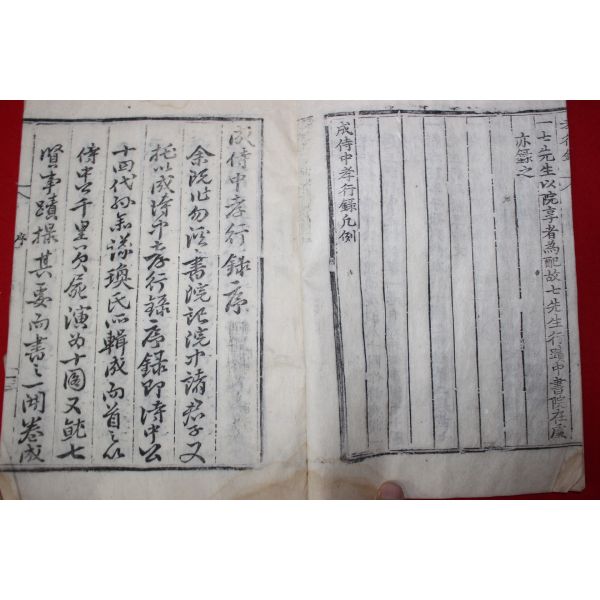 一七先生以院享者為配故七先生行蹟中書院在處
亦錄之
成侍中孝行錄凡例
成侍中孝行錄序
余旣作勿溪書院記院中諸君子又
托以成侍中孝行錄序錄卽侍中公
十四代孫 璟氏所輯成而首之以
侍中千里負屍演為十圖又 七
賢事蹟撮其要而書之一開卷成
序